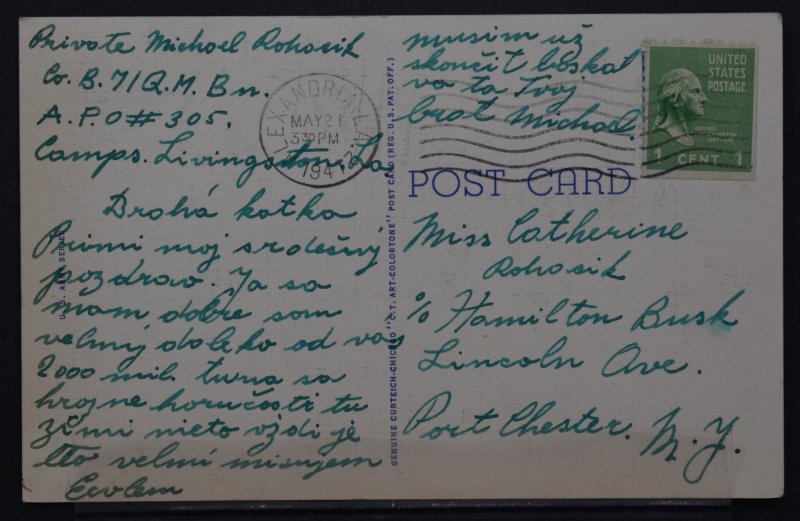 Private Michael Rohosik
Co. B. 71 Q.M. Bn.
A.P.O # 305.
Camps. Livingston, La.
Drahá katka
Priimi moj srdešnÿ
pozdrav. Ja sa
mam dobre som
velmÿ daleko od vas
2000 mil. tuna sa
hrozne horučosti tu
zimi nieto vždi je
tto velmi misujem
musim už
skončit bòskat
va ta Tvoj
brat Michael.
ALEXANDRIA, LA.
MAY 21
3 30 PM
1941
UNITED
STATES
POSTAGE
GEORGE
WASHINGTON
1 CENT 1
POST CARD
Miss Catherine
Rohosik
c/o Hamilton Busk
Lincoln Ave.
Port Chester. N.Y.
U.S. ARMY SERIES
GENUINE CURTEICH-CHICAGO "C.T. ART-COLORTONE" POST CARD (REG. U.S. PAT. OFF.)